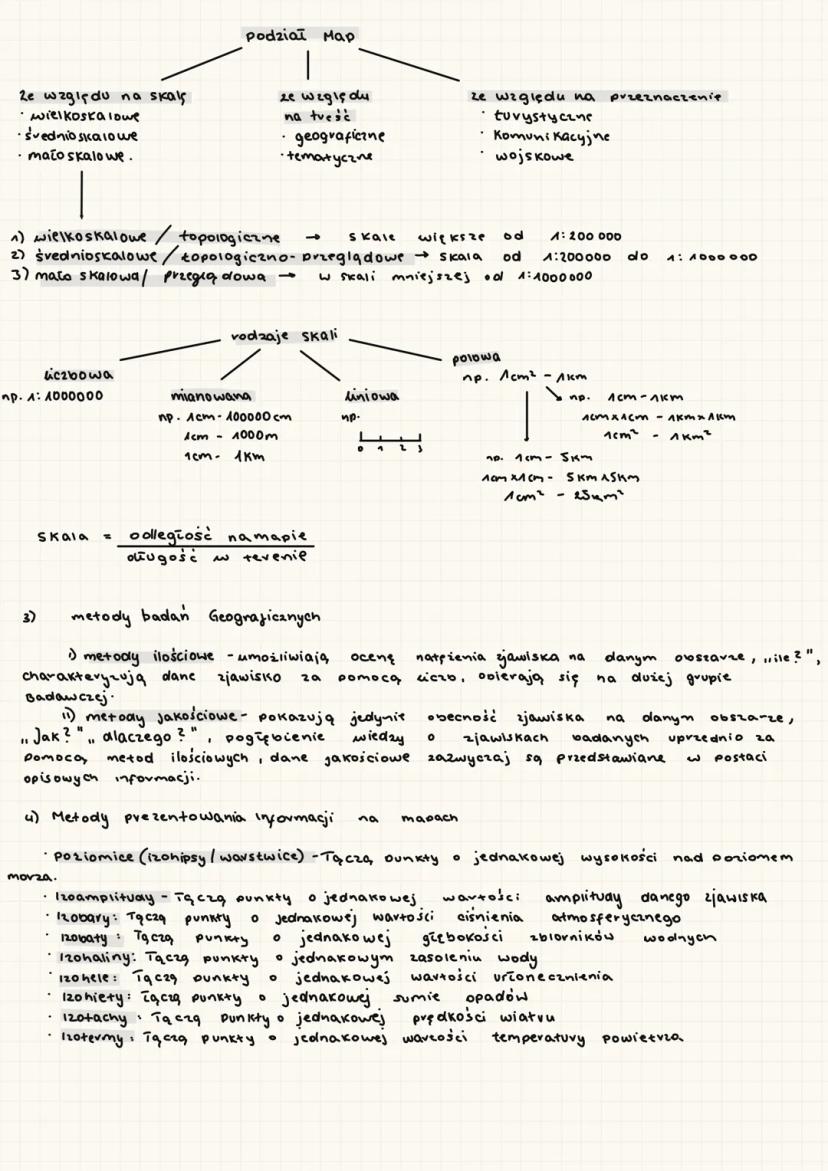 podział Map
ze względu na skalę
· wielkoskalowe
· średnioskalowe
· małoskalowe.
ze względu
na treść
· geograficzne
· tematyczne
ze względu na przeznaczenie
· turystyczne
· komunikacyjne
· wojskowe
1) wielkoskalowe / topologiczne → skale większe od 1:200 000
2) średnioskalowe / topologiczno-przeglądowe → skala od 1:200000 do 1:1000000
3) mało skalowa / przeglądowa → w skali mniejszej od 1:1000000
rodzaje skali
liczbowa
np. 1:1000000
mianowana
np. 1cm-100000cm
1cm - 1000m
1cm- 1km
liniowa
np.
0 1 2 3
polowa
np. 1cm² - 1km
np. 1cm-1km
1cm×1cm - 1km×1km
1cm² - 1km²
np. 1cm- 5km
1cm×1cm- 5km×5km
1cm² - 25km²
skala = odległość na mapie
długość w terenie
3) metody badań Geograficznych
i) metody ilościowe - umożliwiają ocenę natężenia zjawiska na danym obszarze, „ile?",
charakteryzują dane zjawisko za pomocą liczb, opierają się na dużej grupie
badawczej.
ii) metody jakościowe - pokazują jedynie obecność zjawiska na danym obszarze,
„Jak?" „dlaczego?", pogłębienie wiedzy o zjawiskach badanych uprzednio za
pomocą metod ilościowych, dane jakościowe zazwyczaj są przedstawiane w postaci
opisowych informacji.
4) Metody prezentowania informacji na mapach
· poziomice (izohipsy / warstwice) - łączą punkty o jednakowej wysokości nad poziomem
morza.
· Izoamplitudy - łączą punkty o jednakowej wartości amplitudy danego zjawiska
· Izobary: łączą punkty o jednakowej wartości ciśnienia atmosferycznego
· izobaty: łączą punkty o jednakowej głębokości zbiorników wodnych
· Izohaliny: łączą punkty o jednakowym zasoleniu wody
· izohele: łączą punkty o jednakowej wartości usłonecznienia
· izohiety: łączą punkty o jednakowej sumie opadów
· Izotachy: łączą punkty o jednakowej prędkości wiatru
· Izotermy: łączą punkty o jednakowej wartości temperatury powietrza